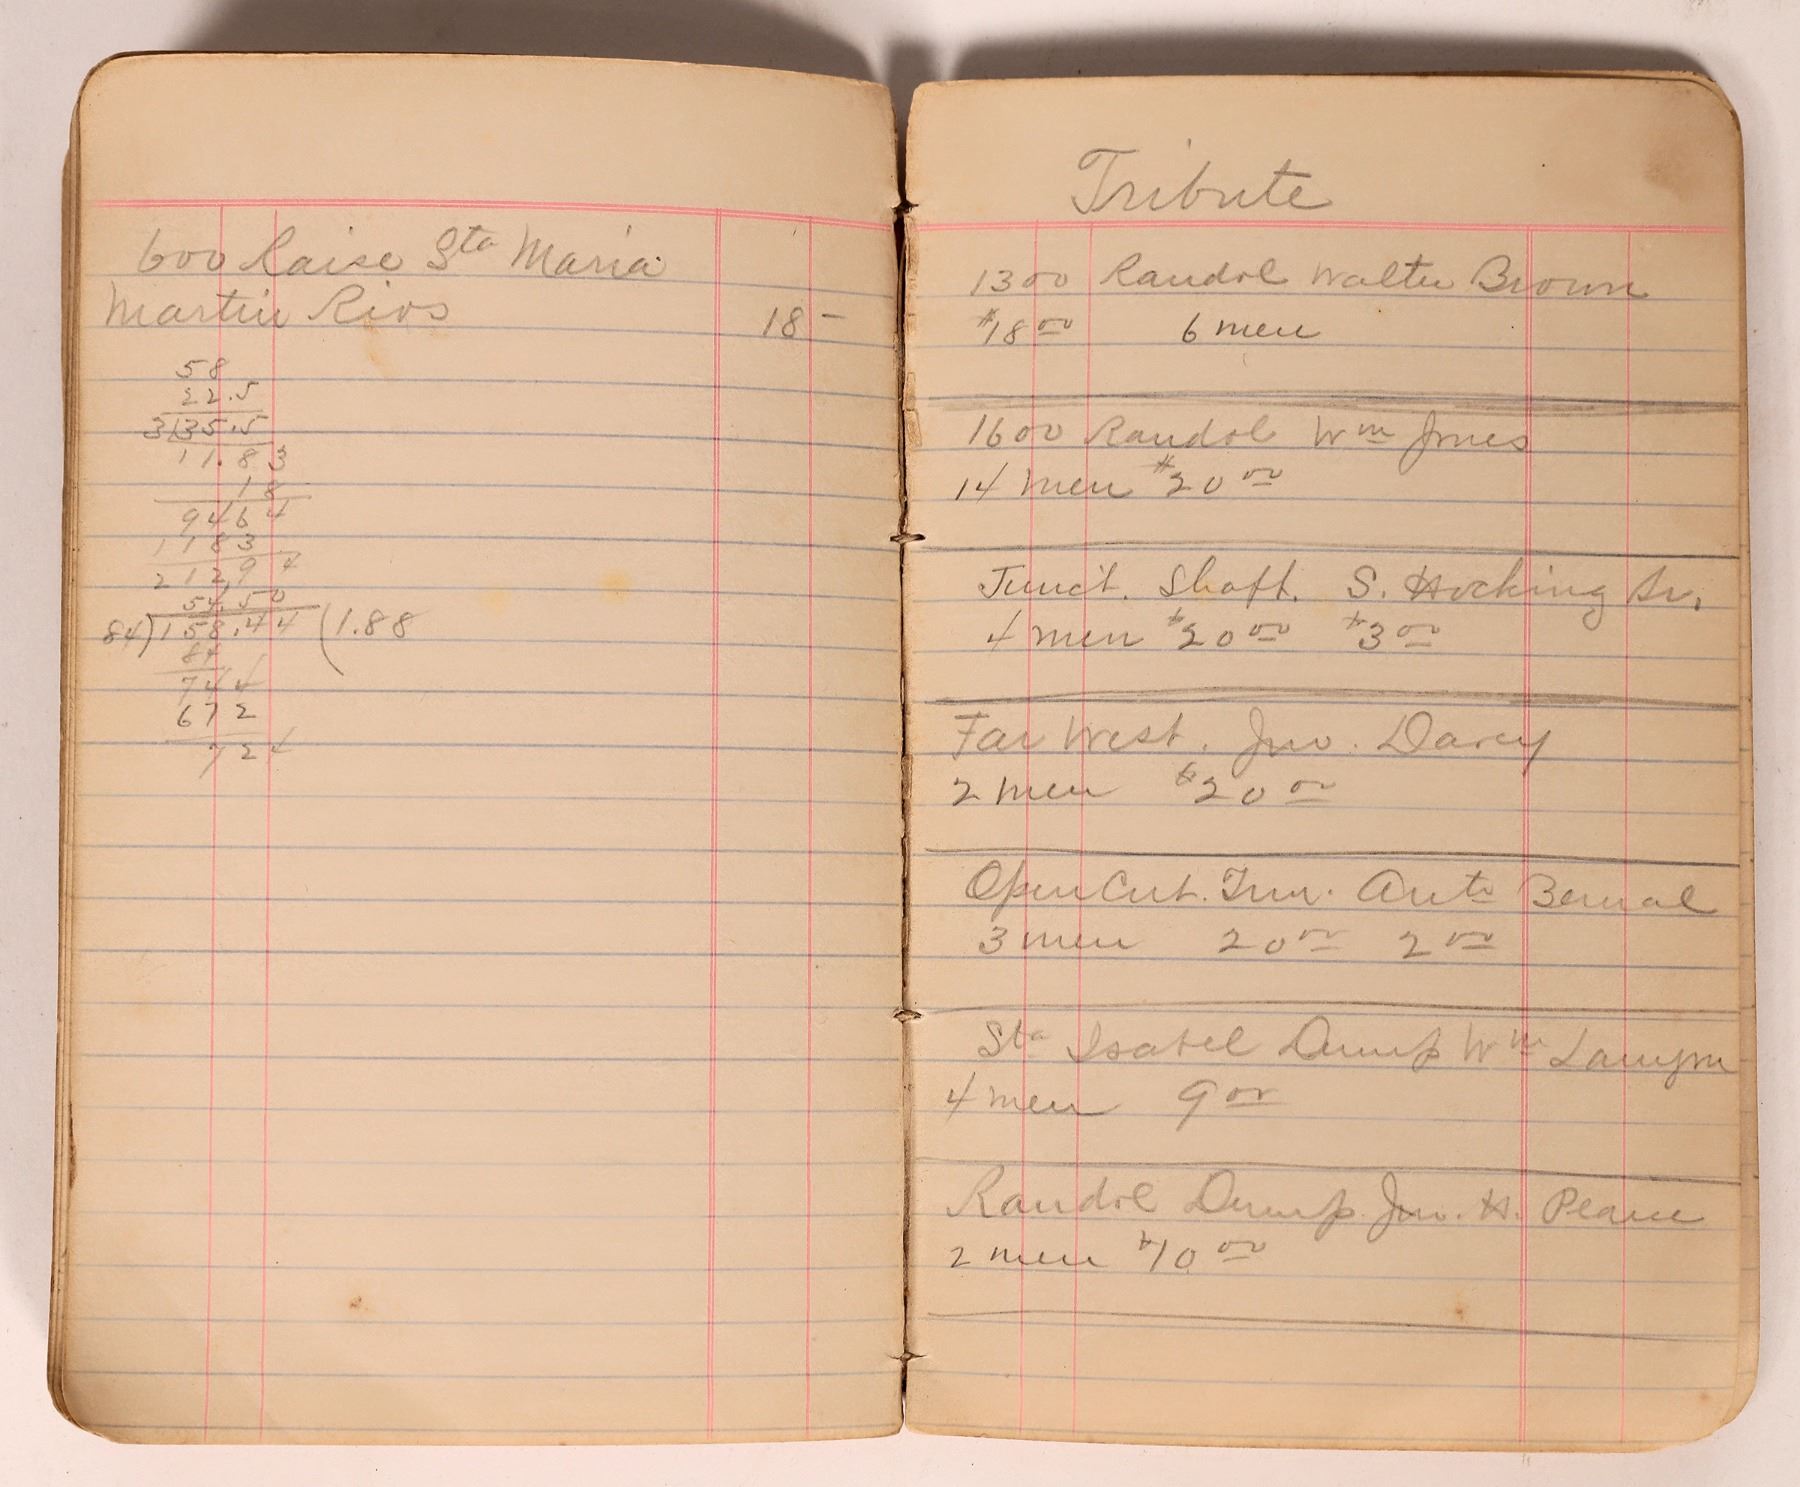 600 Raise Sta Maria
Martin Rios 18 -
58
22.5
3)35.5
11.83
18
9464
1183
21294
54.50
84)158.44(1.88
84
744
672
724
Tribute
1300 Randol Walter Brown
$18 00 6 men
1600 Randol Wm Jones
14 men $20 00
Junct. Shaft. S. Hocking Sr.
4 men $20 00 $3 00
Far West. Jno. Darcy
2 men $20 00
Open Cut. Tun. Anto Bernal
3 men 20 00 2 00
Sta Isabel Dump Wm Lanyon
4 men 9 00
Randol Dump. Jno. H. Pearce
2 men $10 00